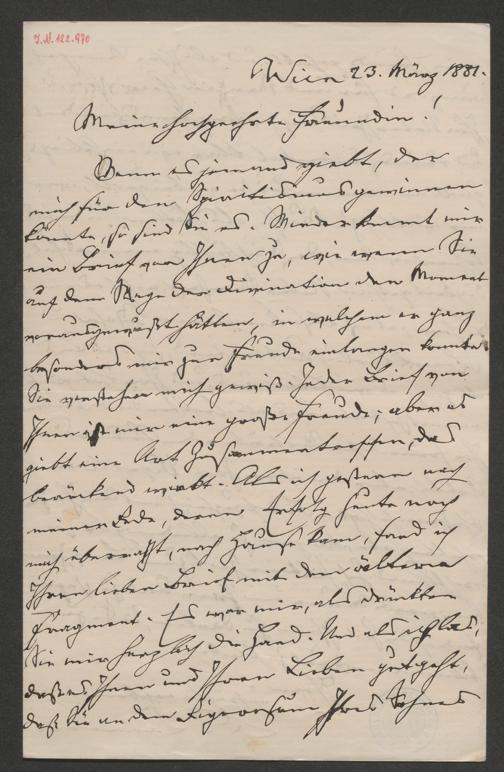 I.N. 122.970
Wien 23. März 1881.
Meine hochgeehrte Freundin!
Wenn es jemand giebt, der
mich für den Spiritismus gewinnen
könnte, so sind Sie es. Wieder kommt mir
ein Brief von Ihnen zu, wie wenn Sie
auf dem Wege der Divination den Moment
vorausgewußt hätten, in welchem er ganz
besonders mir zur Freude einlangen konnte.
Sie verstehen mich gewiß. Jeder Brief von
Ihnen ist mir eine große Freude; aber es
giebt eine Art Zusammentreffen, das
berückend wirkt. Als ich gestern nach
meiner Rede, deren Erfolg heute noch
mich überrascht, nach Hause kam, fand ich
Ihren lieben Brief mit dem älteren
Fragment. Es war mir, als drückten
Sie mir herzlich die Hand. Und als ich las,
daß es Ihnen und Ihren Lieben gut geht,
daß Sie an dem Ihres Sohnes